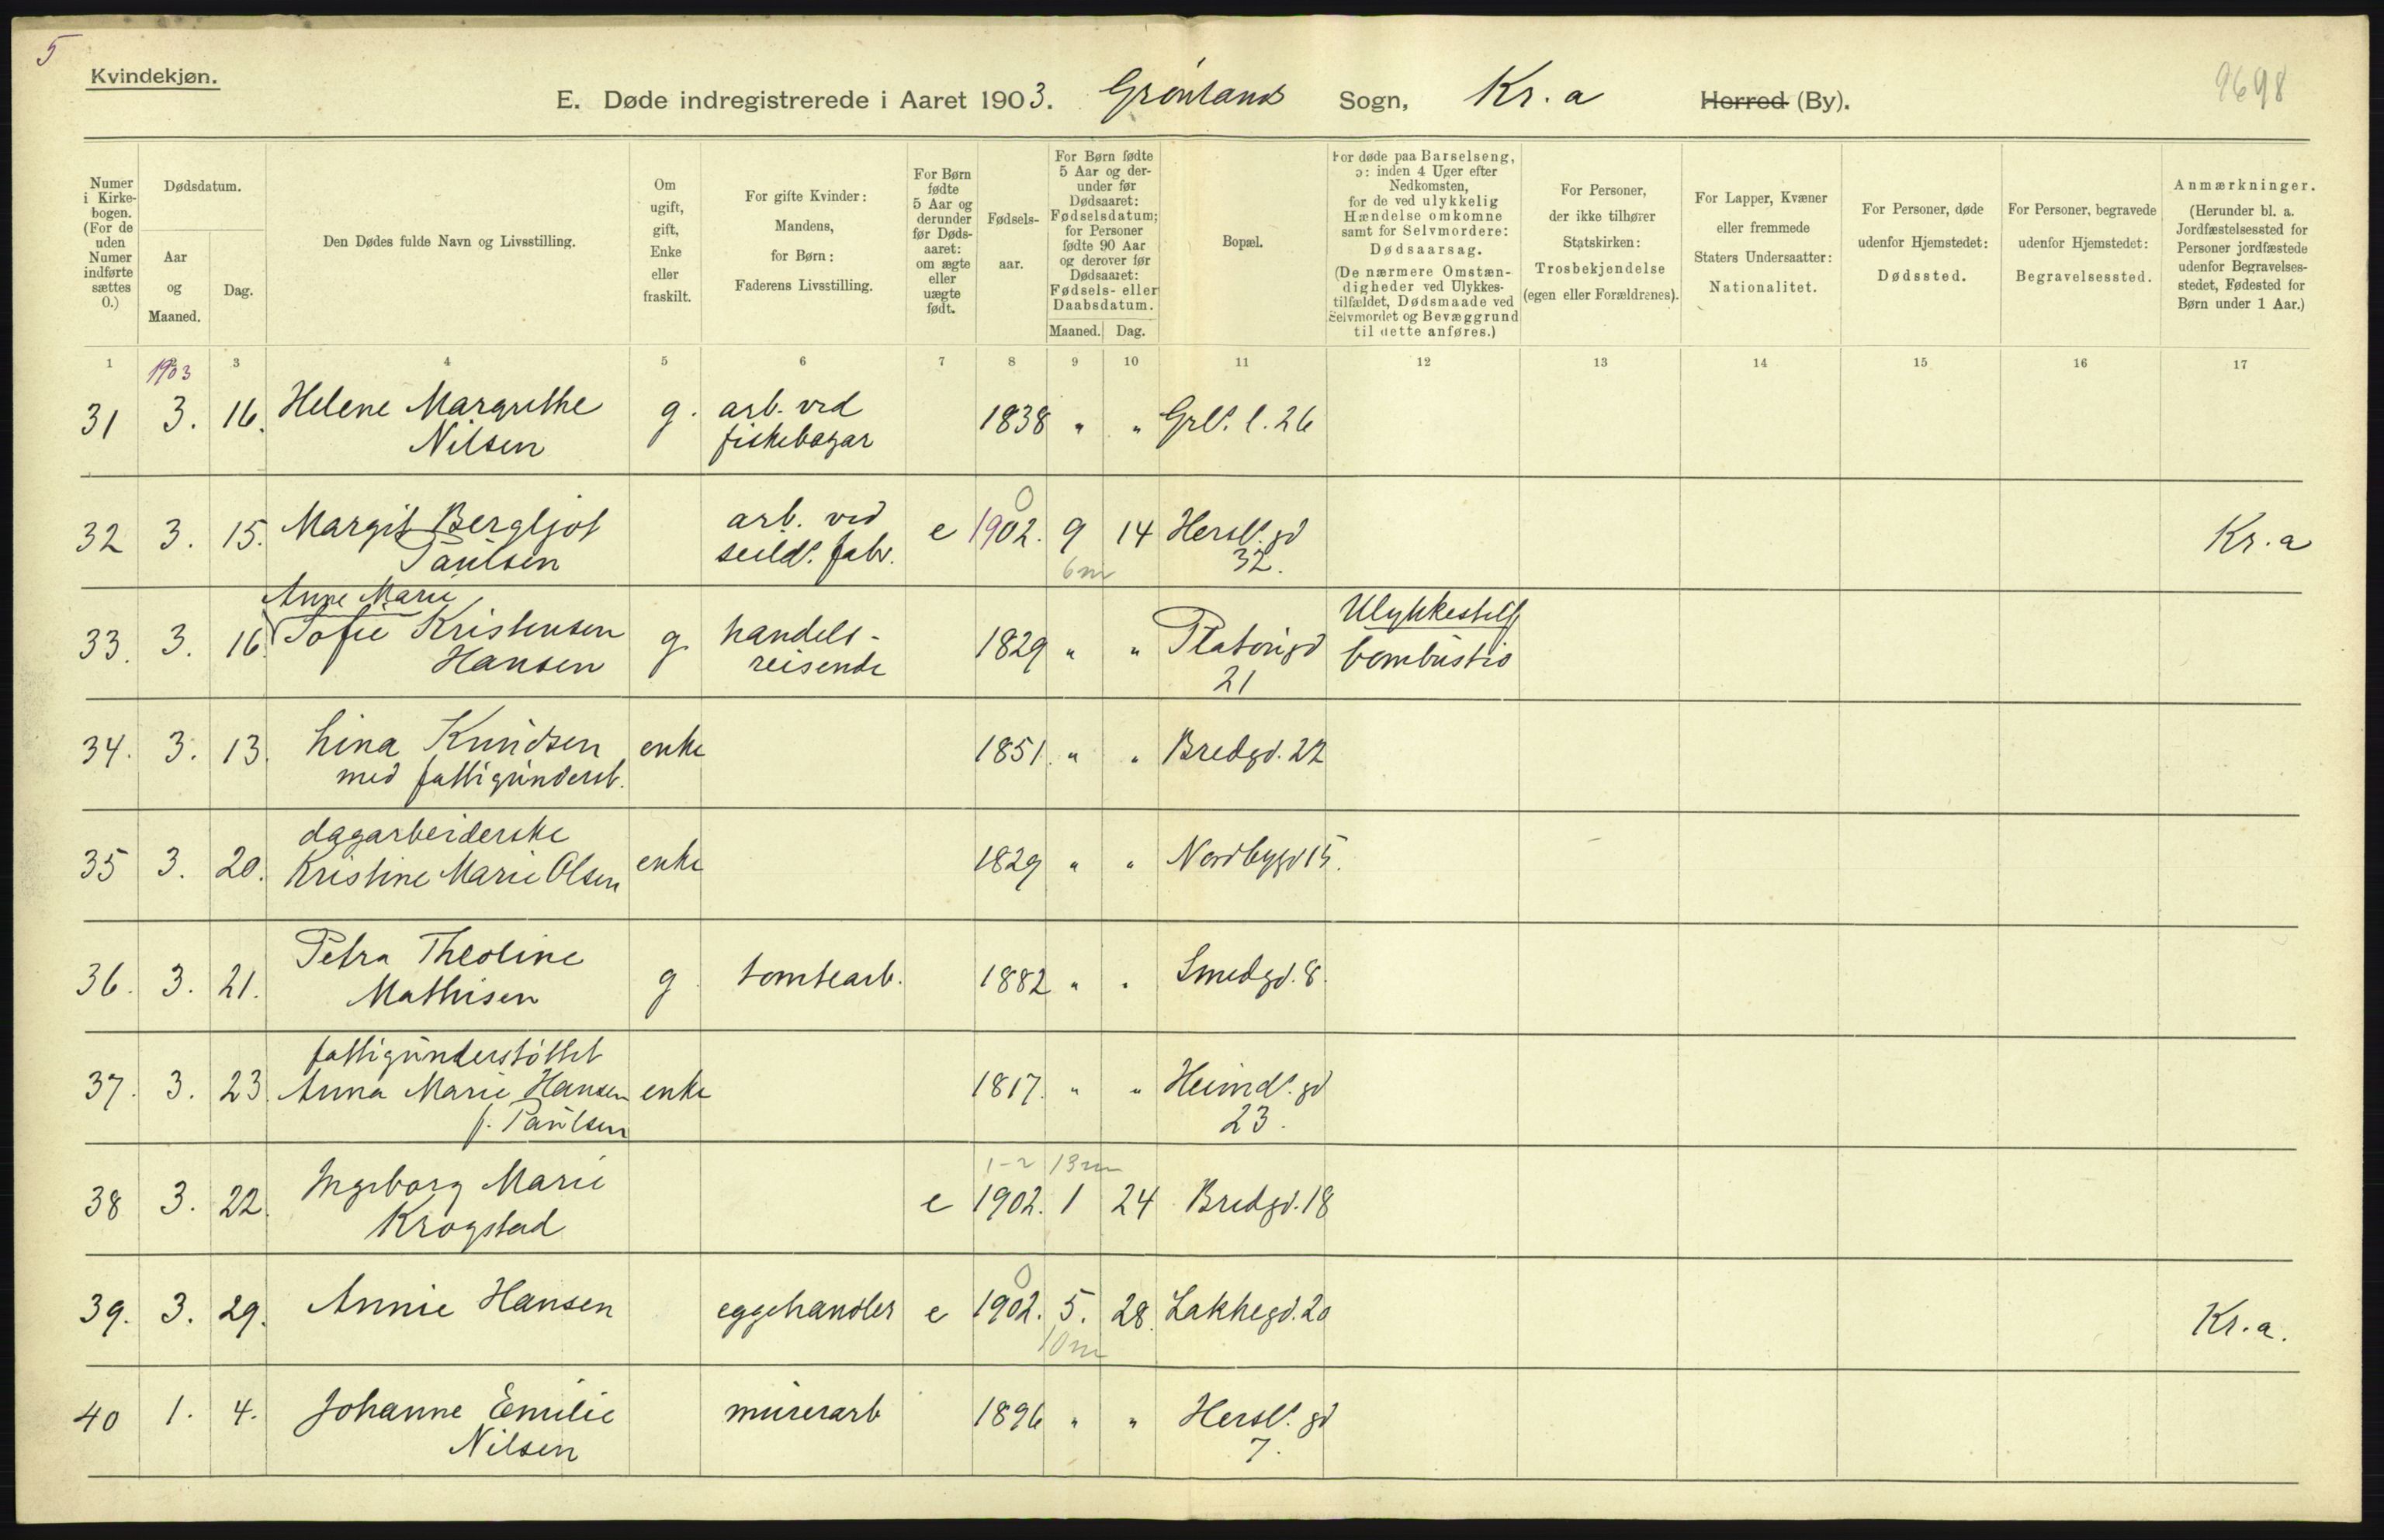 5
Kvindekjøn.
E. Døde indregistrerede i Aaret 1903. Grønlands Sogn, Kr.a Herred (By).
9698
Numer i Kirkebogen. (For de uden Numer indførte sættes 0.)
Dødsdatum.
Aar og Maaned.
Dag.
Den Dødes fulde Navn og Livsstilling.
Om ugift, gift, Enke eller fraskilt.
For gifte Kvinder: Mandens, for Børn: Faderens Livsstilling.
For Børn fødte 5 Aar og derunder før Dødsaaret: om ægte eller uægte født.
Fødselsaar.
For Børn fødte 5 Aar og derunder før Dødsaaret: Fødselsdatum; for Personer fødte 90 Aar og derover før Dødsaaret: Fødsels- eller Daabsdatum.
Maaned. Dag.
Bopæl.
For døde paa Barselseng, ɔ: inden 4 Uger efter Nedkomsten, for de ved ulykkelig Hændelse omkomne samt for Selvmordere: Dødsaarsag. (De nærmere Omstændigheder ved Ulykkestilfældet, Dødsmaade ved Selvmordet og Bevæggrund til dette anføres.)
For Personer, der ikke tilhører Statskirken: Trosbekjendelse (egen eller Forældrenes).
For Lapper, Kvæner eller fremmede Staters Undersaatter: Nationalitet.
For Personer, døde udenfor Hjemstedet: Dødssted.
For Personer, begravede udenfor Hjemstedet: Begravelsessted.
Anmærkninger. (Herunder bl. a. Jordfæstelsessted for Personer jordfæstede udenfor Begravelsesstedet, Fødested for Børn under 1 Aar.)
1 1903 3 4 5 6 7 8 9 10 11 12 13 14 15 16 17
31 3. 16. Helene Margrethe Nilsen g. arb. ved fiskebogar 1838 " " Grl. l. 26
32 3. 15. Margit Bergljot Paulsen arb. ved seild. fabr. e 1902. 0 9 14 6 m Hersl. gd 32. Kr.a
33. 3. 16. Anne Marie Sofie Kristensen Hansen g. handelsreisende 1829 " " Platous gd 21 Ulykkestilf combustio
34. 3. 13. Lina Knudsen med fattigunderst. enke 1851. " " Bredgd. 22
35 3. 20. dagarbeiderske Kristine Marie Olsen enke 1829 " " Nordbygd 15.
36. 3. 21. Petra Theoline Mathisen g. tomtearb. 1882 " " Smedgd. 8.
37. 3. 23. fattigunderstøttet Anna Marie Hansen f. Paulsen enke 1817. " " Heimd. gd 23.
38 3. 22. Ingeborg Marie Krogstad e 1-2 13 m 1902. 1 24 Bredgd. 18
39. 3. 29. Annie Hansen eggehandler e 0 1902. 5. 28. 10 m Lakkegd. 20 Kr.a.
40 1. 4. Johanne Emilie Nilsen murerarb 1896 " " Hersl. gd 7.